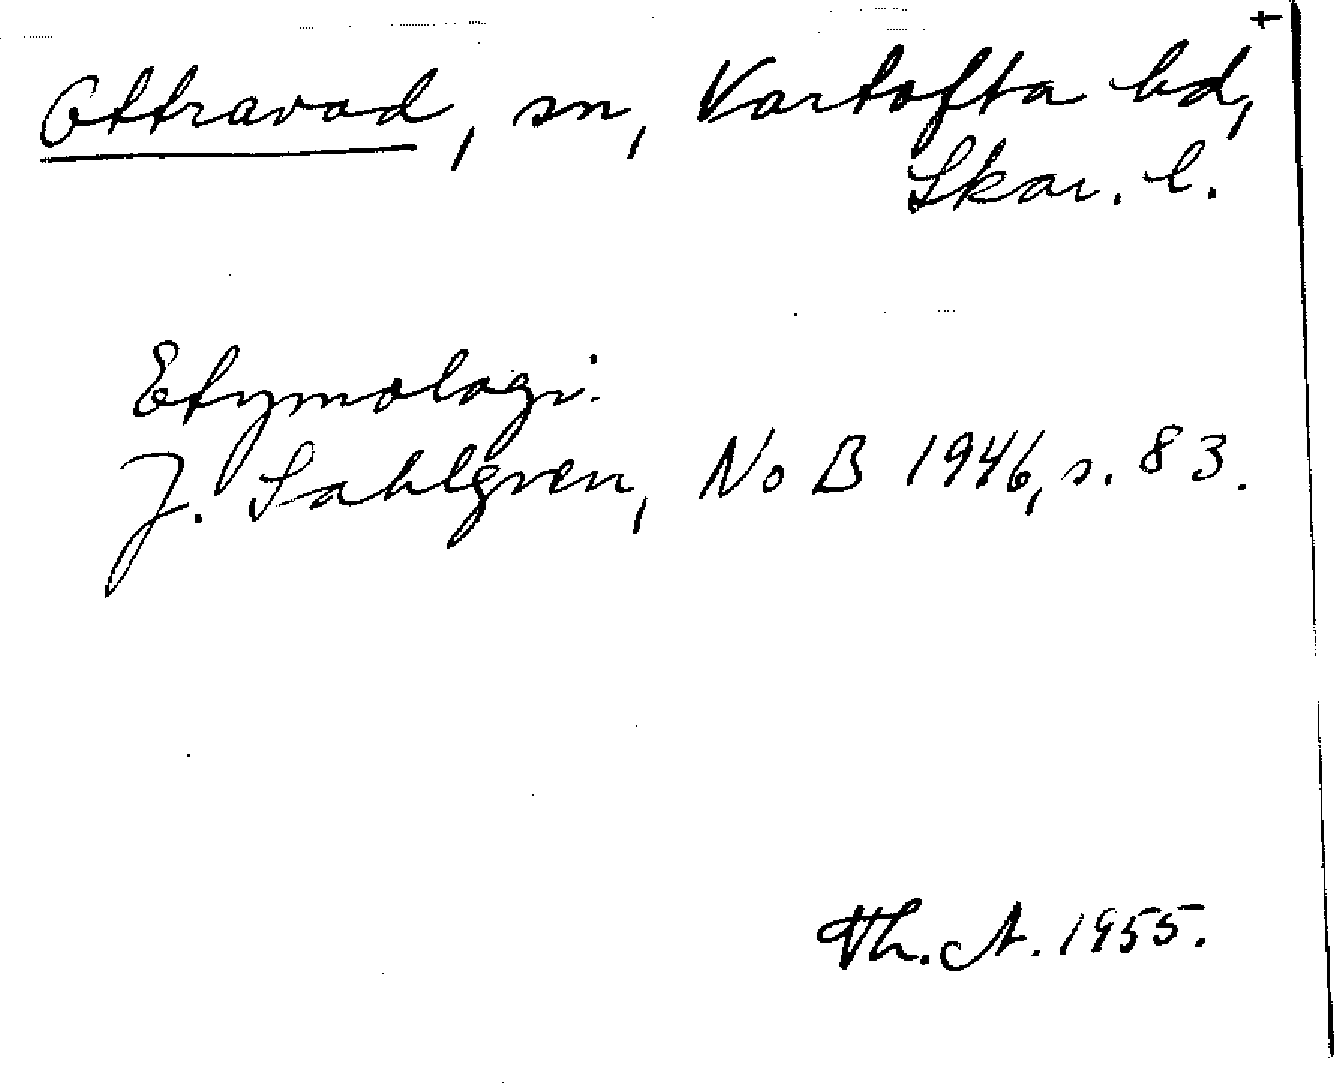 Ottravad, sn, Vartofta hd,
Skar. l.
Etymologi:
J. Sahlgren, No B 1946, s. 83.
Th. A. 1955.